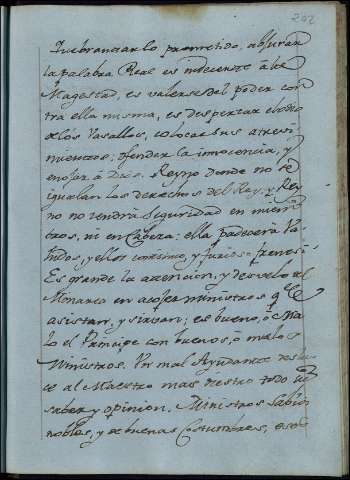 202
Quebrantar lo prometido, abjurar
la palabra Real es indecente à la
Magestad, es valerse del poder con
tra ella misma, es despertar el odio
de los Vasallos, colocar sus atrevi
mientos: ofender la innocencia, y
enojar à Dios. Reyno donde no se
igualan los derechos del Rey, y Rey
no no vendrà seguridad en miem
bros, ni en Cabeza: ella padecerà Va
hidos, y ellos continuo, y furioso frenesi.
Es grande la atencion, y desvelo el
Monarca en acojer ministros qe le
asistan, y sirvan; es bueno, ò ma
lo el Principe con buenos, ò malos
Ministros. Un mal Ayudante desluc
ce al Maestro mas diestro todo su
saber y opinion. Ministros sabios
nobles, y de buenas Costumbres, esos